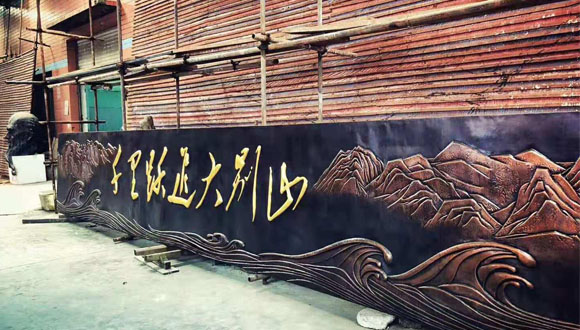 千里跃进大别山